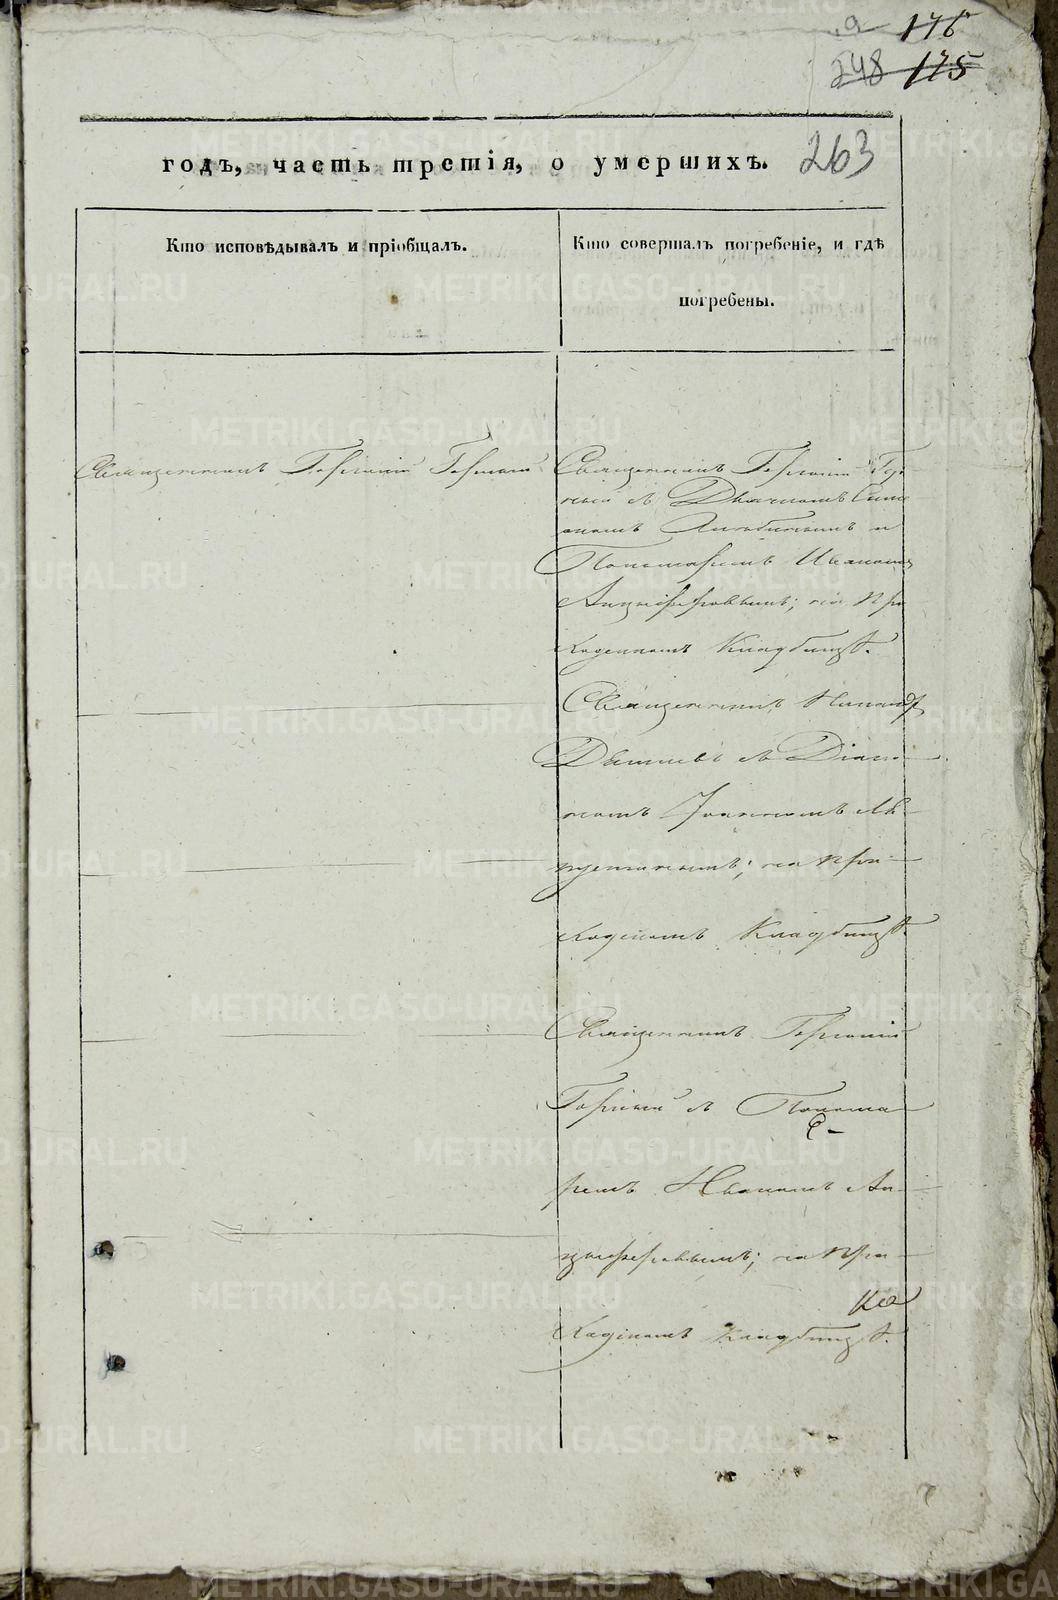 176
248 175
263
годъ, часть третія, о умершихъ.
Кто исповѣдывалъ и пріобщалъ.
Кто совершалъ погребеніе, и гдѣ
погребены.
Священникъ Георгій Горный
Священникъ Георгій Гор-
ный съ Дьячкомъ
и
Пономаремъ Иваномъ
Анцыферовымъ; на При
ходскомъ Кладбищѣ.
Священникъ
съ Діако-
номъ Іоанномъ
на при-
ходскомъ Кладбищѣ.
Священникъ Георгій
Горный съ Понома-
ремъ Иваномъ Ан-
цыферовымъ; на При-
ходскомъ Кладбищѣ.
METRIKI.GASO-URAL.RU